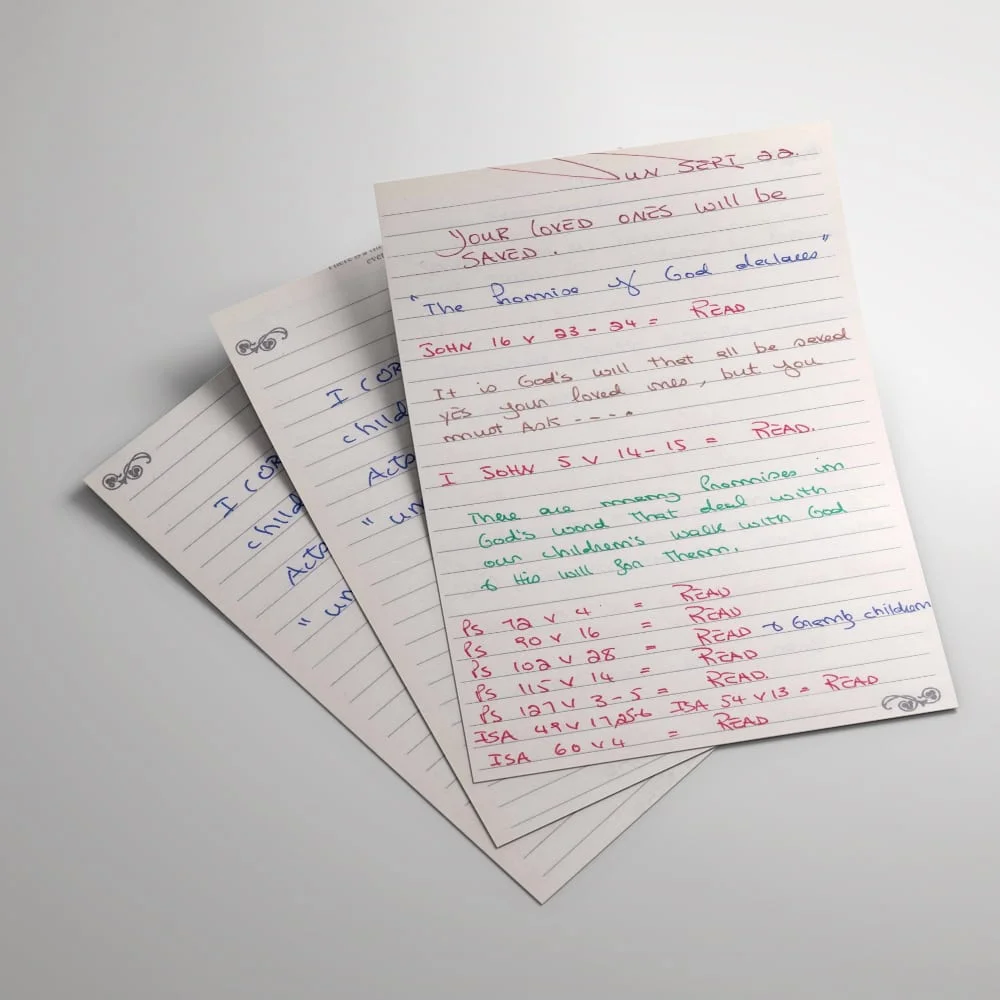 SUN SEPT 22.
YOUR LOVED ONES will be
SAVED.
"The Promise of God declares"
JOHN 16 v 23-24 = READ
It is God's will that all be saved
yes your loved ones, but you
must Ask ----.
I JOHN 5 v 14-15 = READ.
There are many Promises in
God's word That deal with
our children's walk with God
& His will for Them.
Ps 72 v 4 = READ
Ps 90 v 16 = READ
Ps 102 v 28 = READ & Grand children
Ps 115 v 14 = READ
Ps 127 v 3-5 = READ.
ISA 49 v 17,25-6 ISA 54 v 13 = READ
ISA 60 v 4 = READ
I COR
child
Acts
"un
I COR
child
Acts
"un